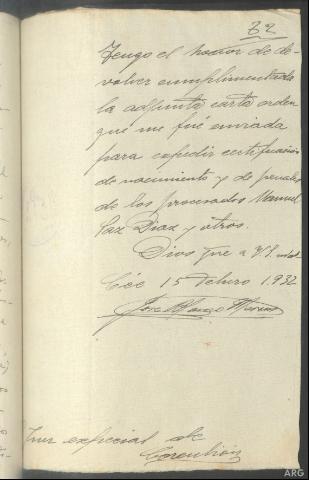 72
Tengo el honor de de-
volver cumplimentada
la adjunta carta orden
que me fué enviada
para expedir certificación
de nacimiento y de penales
de los procesados Manuel
Paz Diaz y otros.
Dios gue a V.S. m.
Cée 15 Febrero 1932
José
Juez especial de
Corcubión
ARG